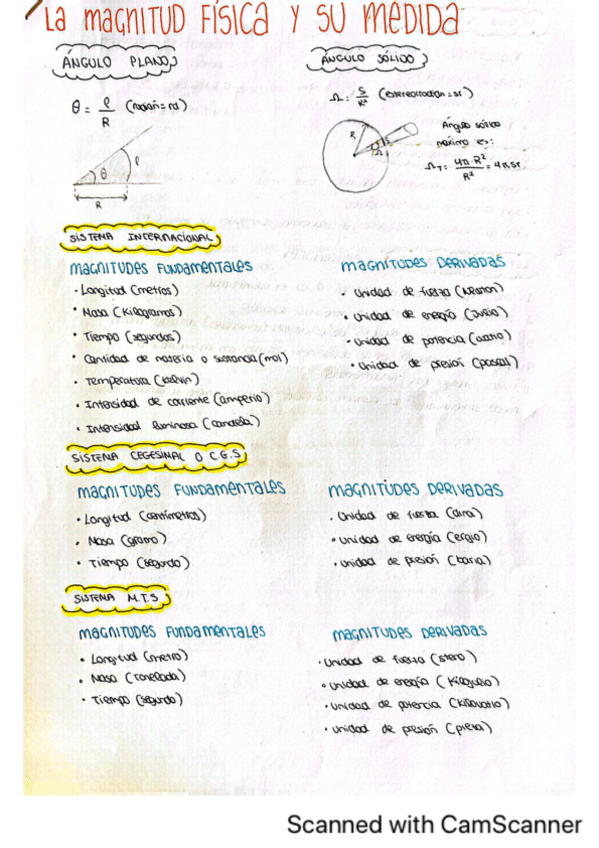 La magnitud física y su medida
ÁNGULO PLANO
θ = ℓ/R (radian = rd)
ℓ
θ
R
ÁNGULO SÓLIDO
Ω = S/R² (estereorradian = sr)
R
S
Ω
Ángulo sólido
máximo es:
Ω_T = 4π·R²/R² = 4π sr
SISTEMA INTERNACIONAL
magnitudes fundamentales
· Longitud (metros)
· Masa (Kilogramos)
· Tiempo (segundos)
· Cantidad de materia o sustancia (mol)
· Temperatura (kelvin)
· Intensidad de corriente (amperio)
· Intensidad luminosa (candela)
magnitudes derivadas
· Unidad de fuerza (Newton)
· Unidad de energía (Julio)
· Unidad de potencia (watio)
· Unidad de presión (pascal)
SISTEMA CEGESINAL O C.G.S
magnitudes fundamentales
· Longitud (centímetros)
· Masa (gramo)
· Tiempo (segundo)
magnitudes derivadas
· Unidad de fuerza (dina)
· Unidad de energía (ergio)
· Unidad de presión (baria)
SISTEMA M.T.S
magnitudes fundamentales
· Longitud (metro)
· Masa (Tonelada)
· Tiempo (segundo)
magnitudes derivadas
· Unidad de fuerza (steno)
· Unidad de energía (Kilojulio)
· Unidad de potencia (Kilovatio)
· Unidad de presión (pieza)
Scanned with CamScanner